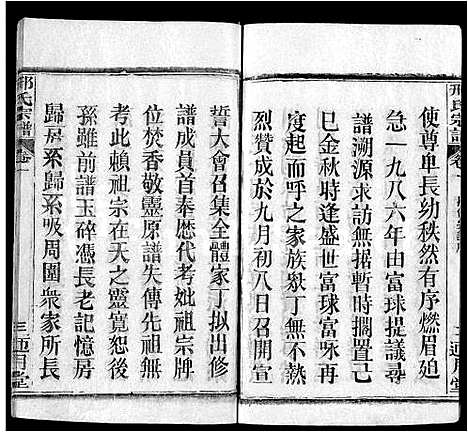 使尊卑長幼秩然有序燃眉迫
急一九八六年由富球提議尋
譜溯源求訪無据暫時擱置己
巳金秋時逢盛世富球富咏再
度起而呼之家族欽丁无不熱
烈赞成於九月初八日召開宣
誓大會召集全體家丁拟出修
譜成員首奉歷代考妣祖宗牌
位焚香敬靈原譜失傳先祖無
考此賴祖宗在天之靈寬恕後
孫雖前譜玉碎憑長老記憶房
歸房系歸系吸周圍衆家所長
邢氏宗譜
卷一
三